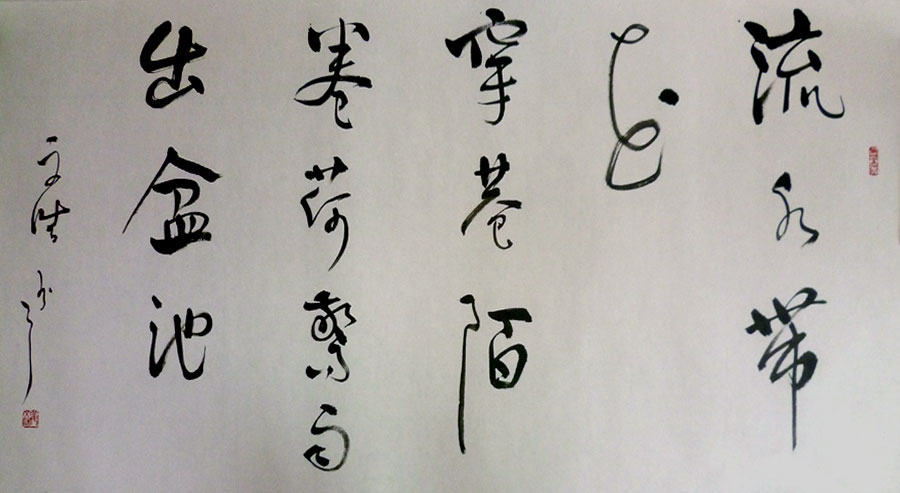 流水带
花
穿巷陌
卷荷驚雨
出盆池